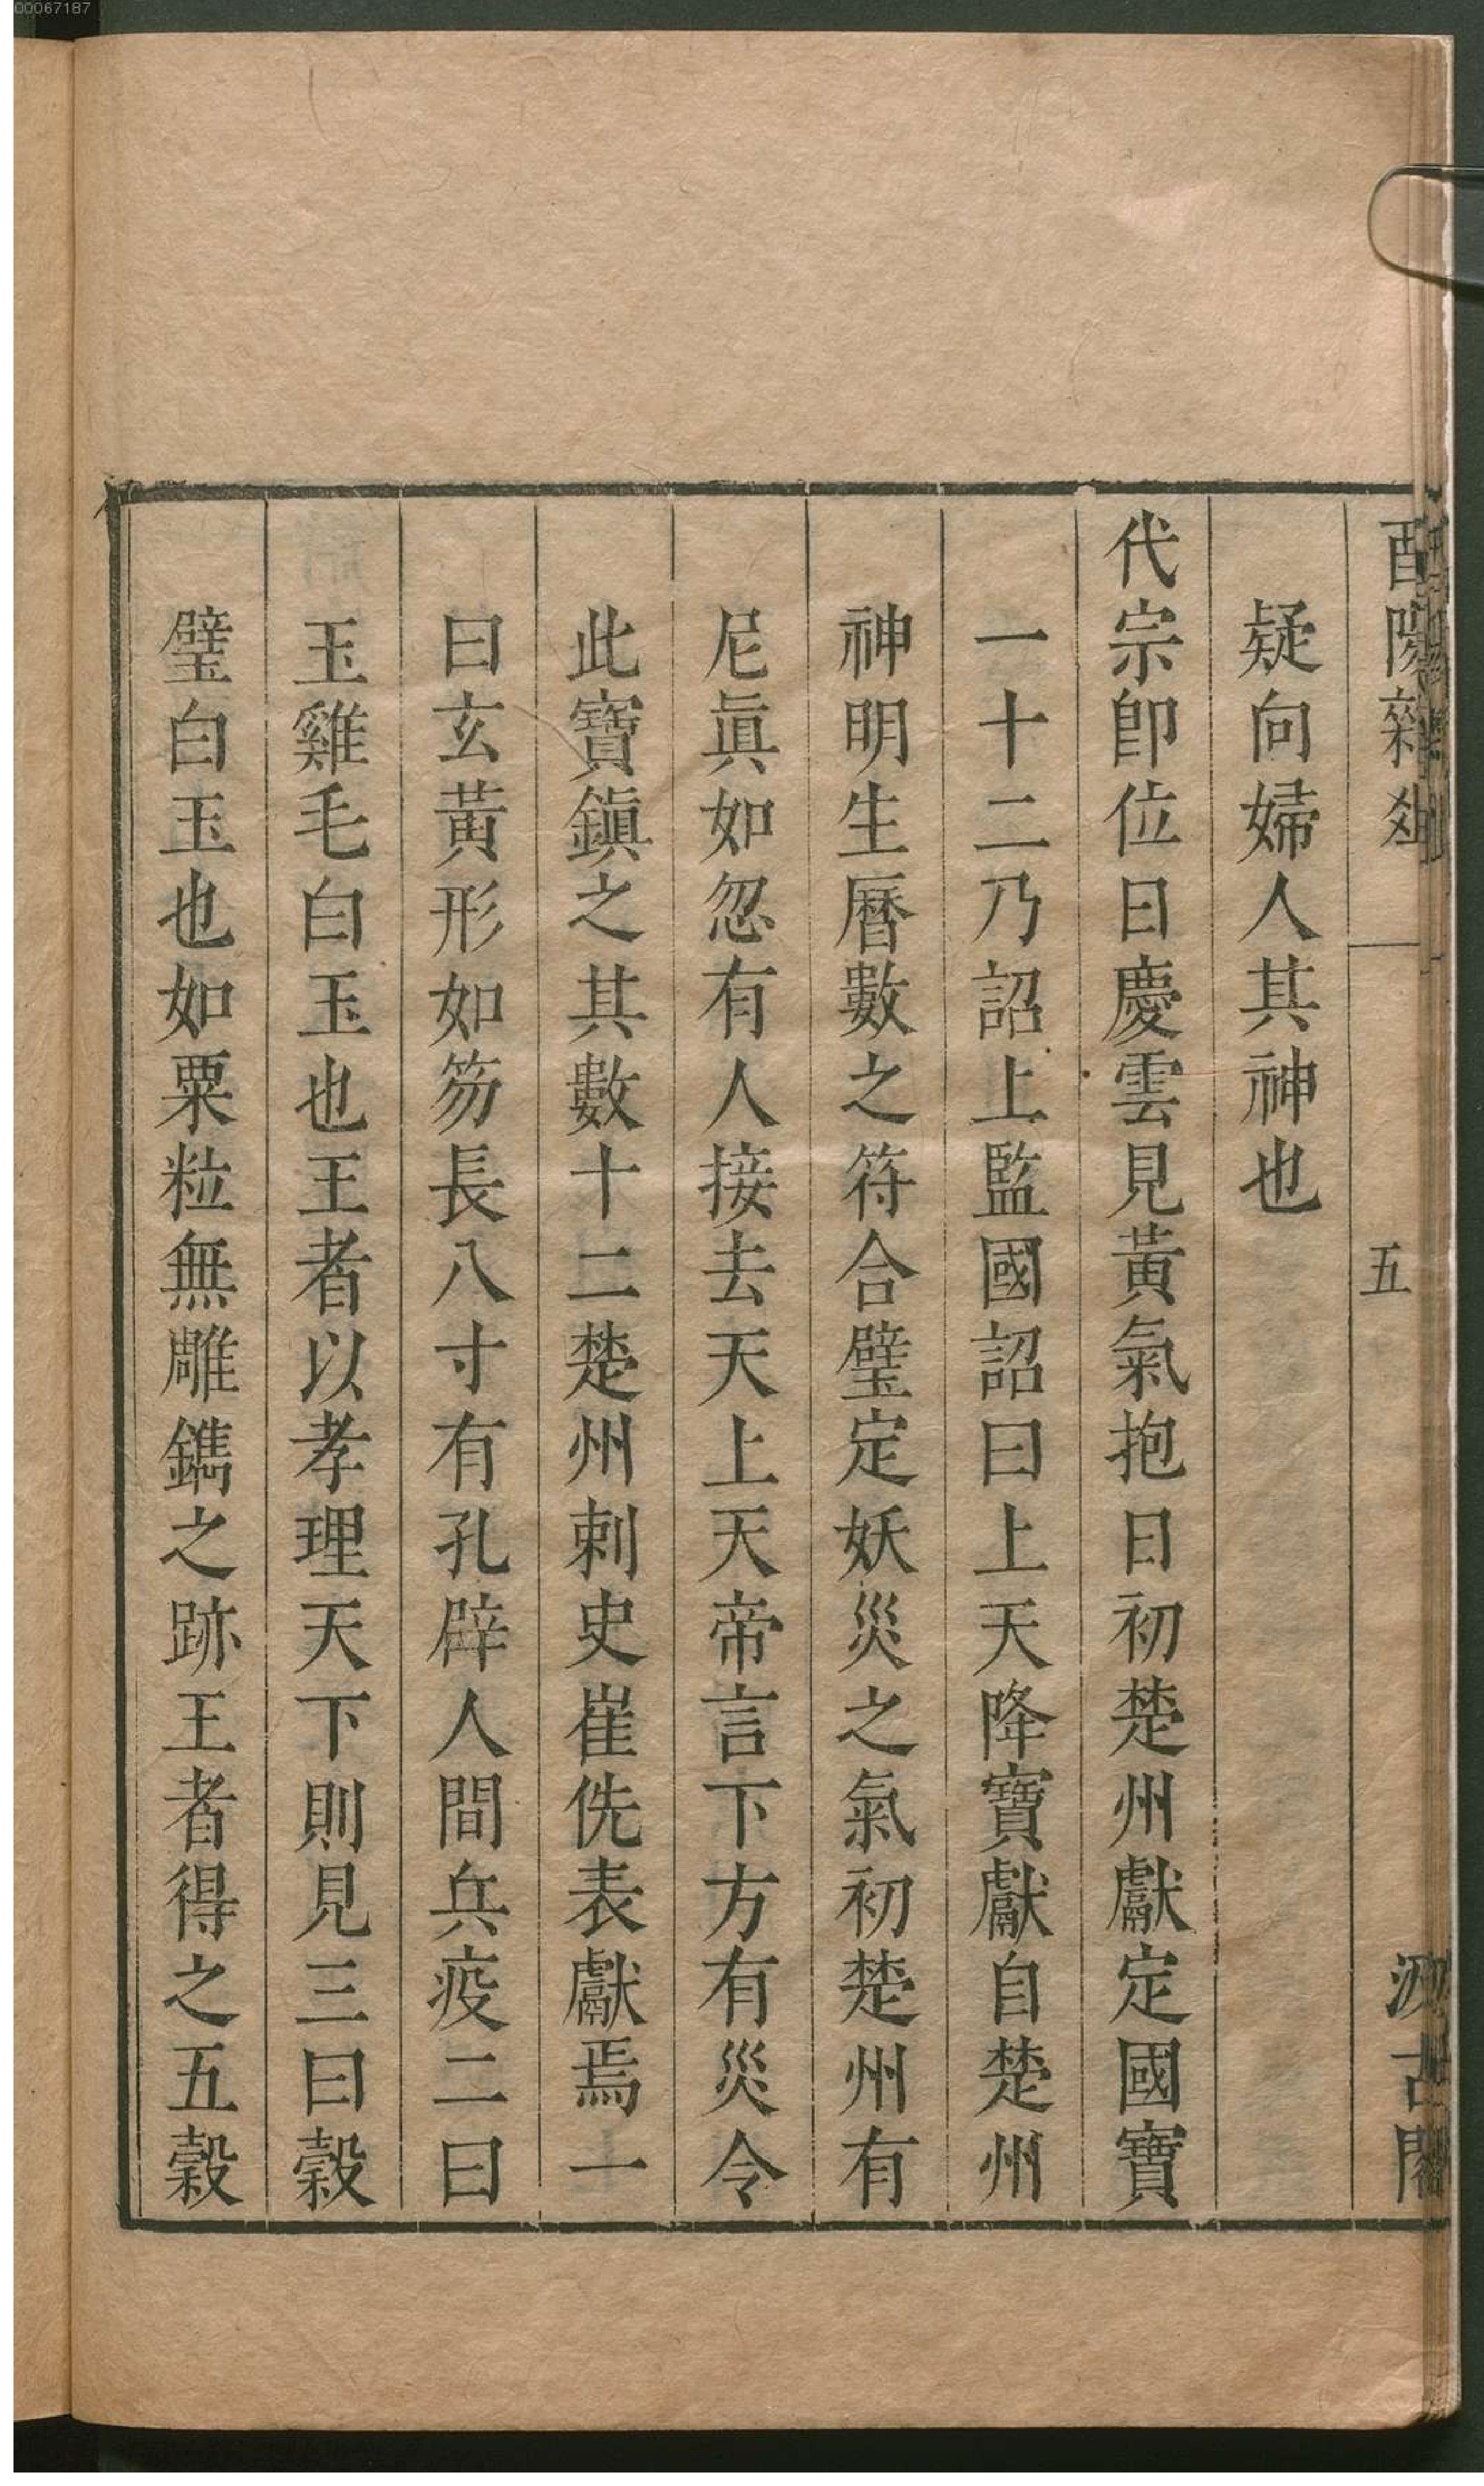 00067187
酉陽雜俎
五
汲古閣
疑向婦人其神也
代宗卽位日慶雲見黃氣抱日初楚州獻定國寶
一十二乃詔上監國詔曰上天降寶獻自楚州
神明生曆數之符合璧定妖災之氣初楚州有
尼眞如忽有人接去天上天帝言下方有災令
此寶鎭之其數十二楚州刺史崔侁表獻焉一
曰玄黃形如笏長八寸有孔辟人間兵疫二曰
玉雞毛白玉也王者以孝理天下則見三曰穀
璧白玉也如粟粒無雕鐫之跡王者得之五穀